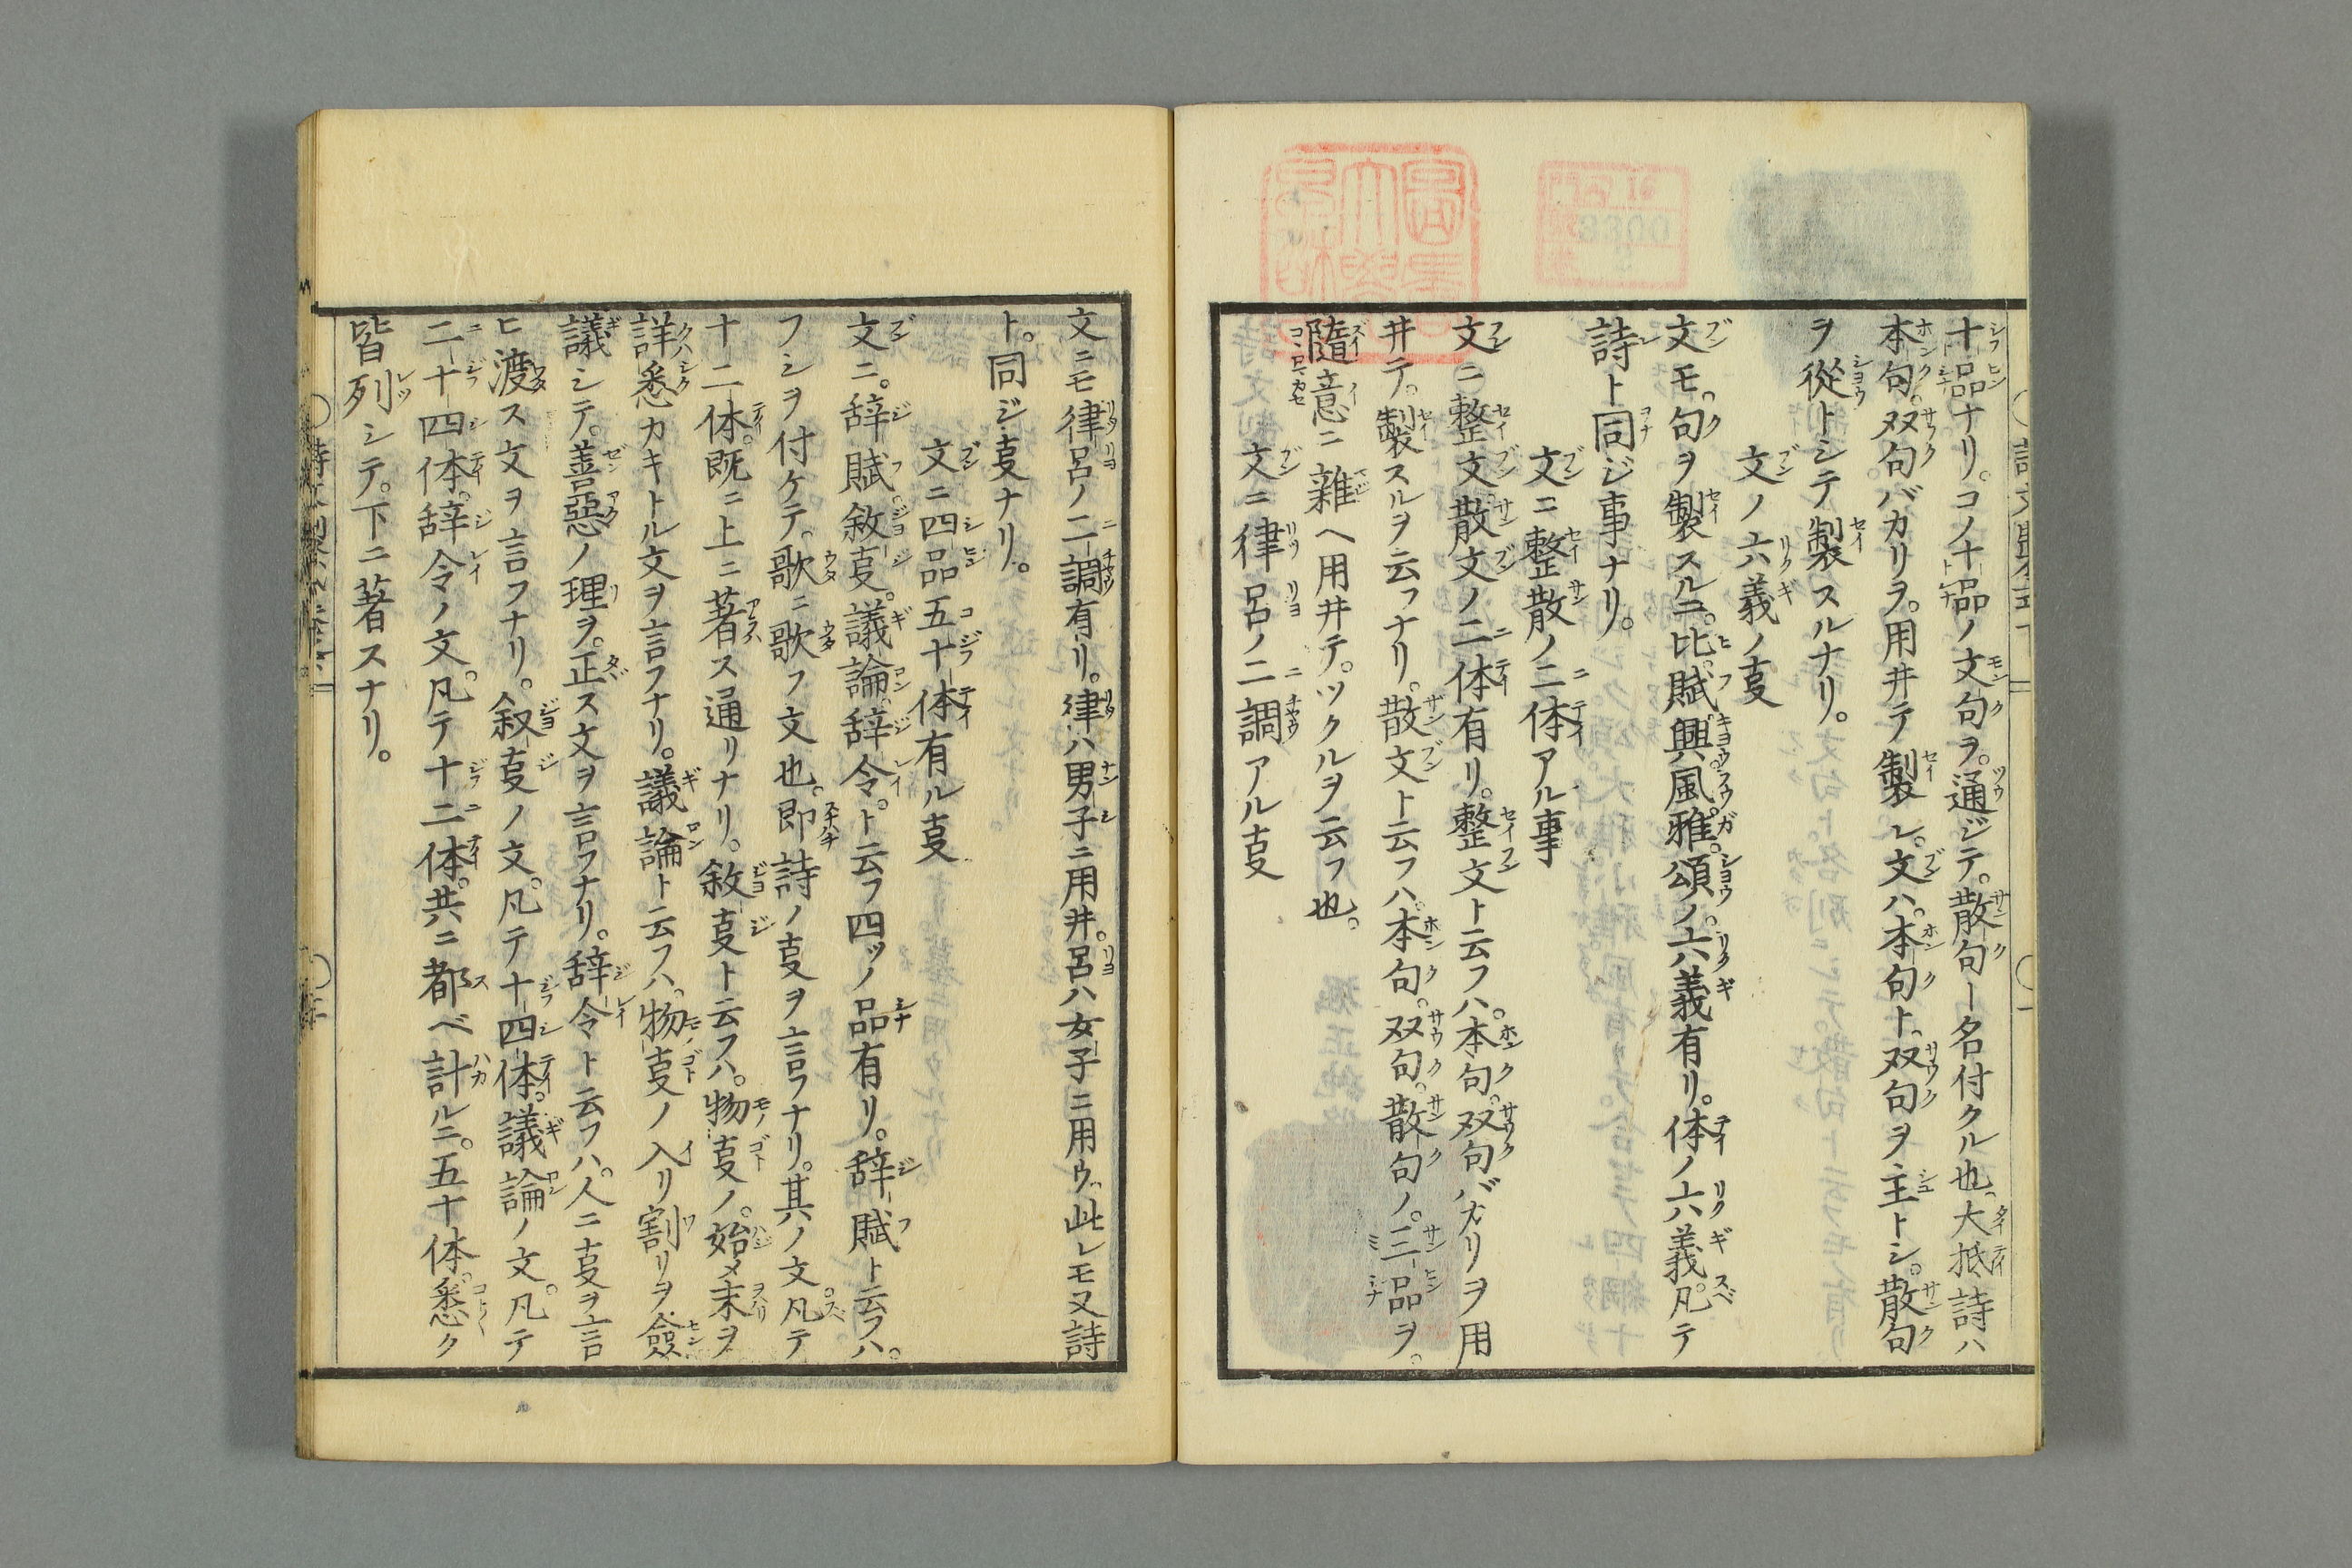 十品ナリ。コノ十品ノ文句ヲ。通ジテ。散句ー名付クル也。大抵詩ハ
本句。双句バカリヲ。用井テ製シ。文ハ。本句ト。双句ヲ主トシ。散句
ヲ從トシテ製スルナリ。
文ノ六義ノ㕝
文モ。句ヲ製スルニ。比。賦。興。風。雅。頌ノ。六義有リ。体ノ六義。凡テ
詩ト同ジ事ナリ。
文ニ整散ノ二体アル事
文ニ整文。散文ノ二体有リ。整文ト云フハ。本句。双句バカリヲ用
井テ。製スルヲ云フナリ。散文ト云フハ。本句。双句。散句ノ。三品ヲ。
隨意ニ雜ヘ用井テ。ツクルヲ云フ也。
文ニ律呂ノ二調アル㕝
文ニモ律呂ノ二調有リ。律ハ男子ニ用井。呂ハ女子ニ用ウ。此レモ又詩
ト。同ジ㕝ナリ。
文ニ四品五十体有ル㕝
文ニ。辞賦。敘㕝。議論。辞令。ト云フ四ツノ品有リ。辞賦ト云フハ。
フシヲ付ケテ。歌ニ歌フ文也。即詩ノ㕝ヲ言フナリ。其ノ文凡テ
十二体。既ニ上ニ著ス通リナリ。敘㕝ト云フハ。物㕝ノ。始メ末ヲ
詳悉カキトル文ヲ言フナリ。議論ト云フハ。物㕝ノ入リ割リヲ僉
議シテ。善惡ノ理ヲ。正ス文ヲ言フナリ。辞令ト云フハ。人ニ㕝ヲ言
ヒ渡ス文ヲ言フナリ。叙㕝ノ文。凡テ十四体。議論ノ文。凡テ
二十四体。辞令ノ文。凡テ十二体。共ニ都ベ計ルニ。五十体。悉ク
皆列シテ。下ニ著スナリ。